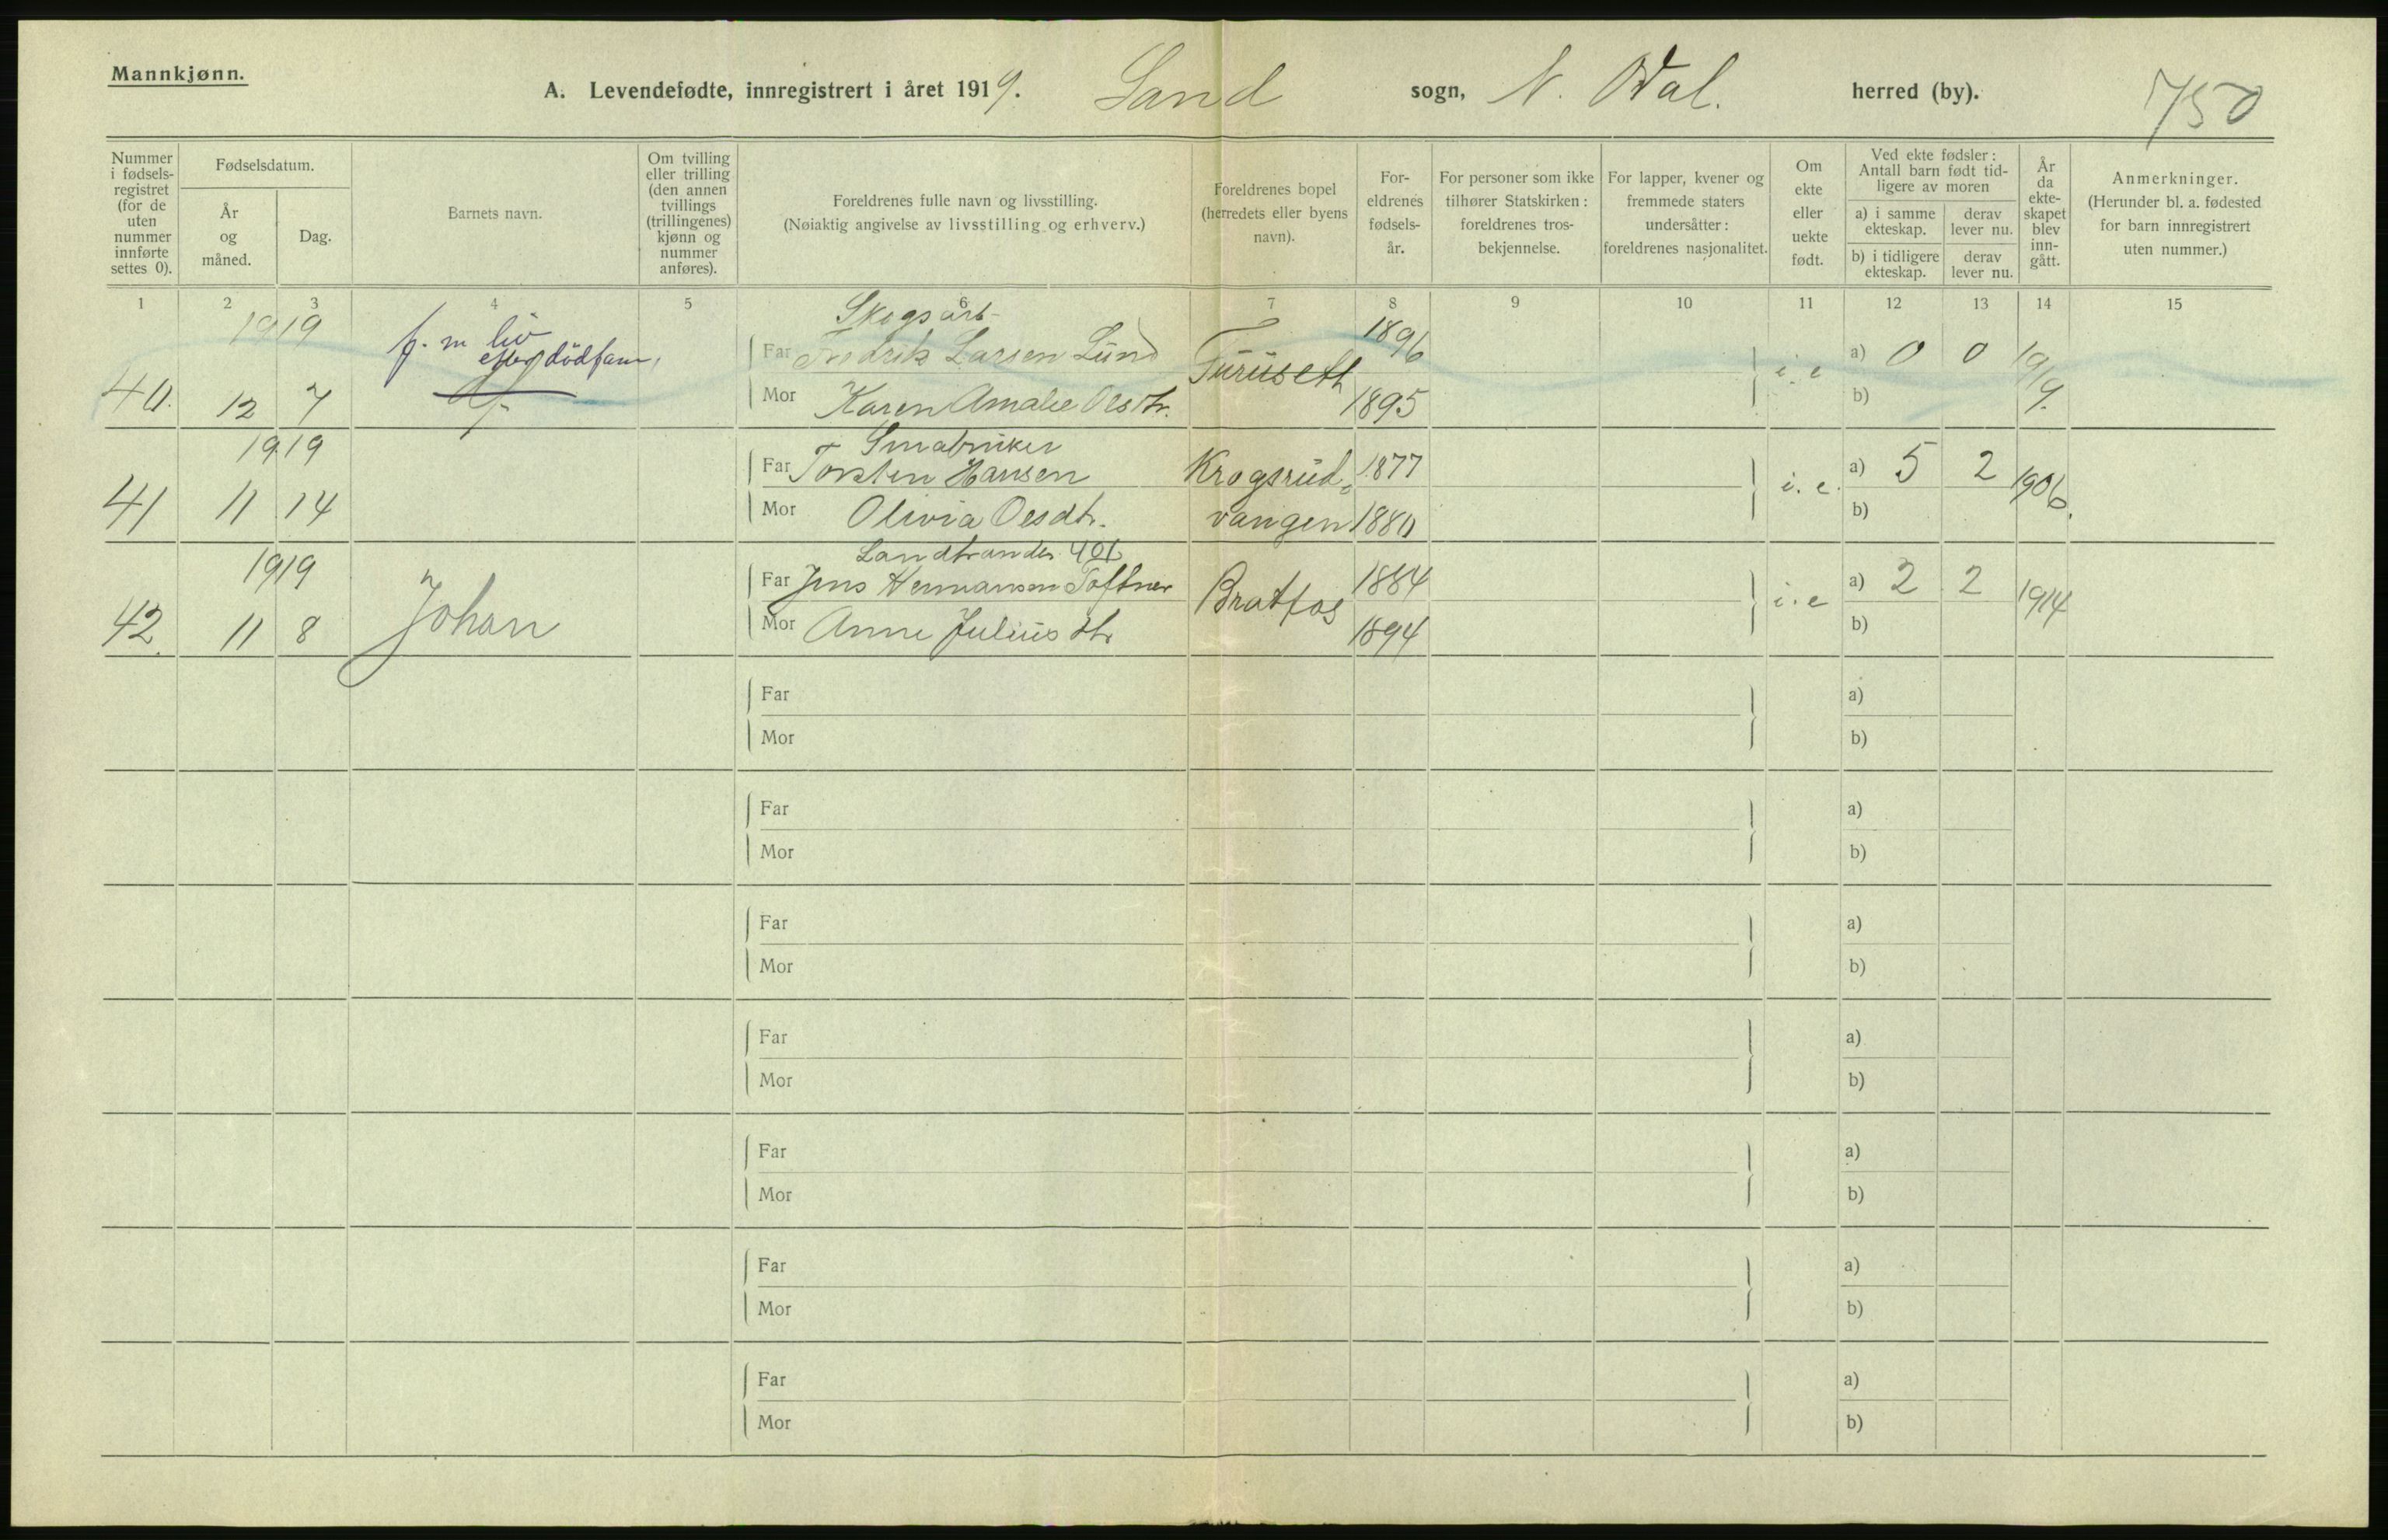 Mannkjønn.
A. Levendefødte, innregistrert i året 1919. Sand sogn, N. Odal. herred (by). 750
Nummer i fødsels-registret (for de uten nummer innførte settes 0).
Fødselsdatum.
År og måned.
Dag.
Barnets navn.
Om tvilling eller trilling (den annen tvillings (trillingenes) kjønn og nummer anføres).
Foreldrenes fulle navn og livsstilling.
(Nøiaktig angivelse av livsstilling og erhverv.)
Foreldrenes bopel (herredets eller byens navn).
For-eldrenes fødsels-år.
For personer som ikke tilhører Statskirken: foreldrenes tros-bekjennelse.
For lapper, kvener og fremmede staters undersåtter: foreldrenes nasjonalitet.
Om ekte eller uekte født.
Ved ekte fødsler: Antall barn født tid-ligere av moren
a) i samme ekteskap.
derav lever nu.
b) i tidligere ekteskap.
derav lever nu.
År da ekte-skapet blev inn-gått.
Anmerkninger.
(Herunder bl. a. fødested for barn innregistrert uten nummer.)
1 2 3 4 5 6 7 8 9 10 11 12 13 14 15
1919 f. m liv Skogsarb- 1896
Far Fredrik Larsen Lund Furuseth i. e a) 0 0 1919.
40. 12 7 Mor Karen Amalie Olsdtr. 1895 b)
1919 Småbruker
Far Torsten Hansen Krogsrud- 1877 i. e. a) 5 2 1906.
41 11 14 Mor Olivia Olsdtr. vangen 1880 b)
1919 Landhandler 401
Far Jens Hermansen Toftner Bratfos 1884 i. e a) 2 2 1914
42. 11 8 Johan Mor Anne Juliusdtr 1894 b)
Far a)
Mor b)
Far a)
Mor b)
Far a)
Mor b)
Far a)
Mor b)
Far a)
Mor b)
Far a)
Mor b)
Far a)
Mor b)